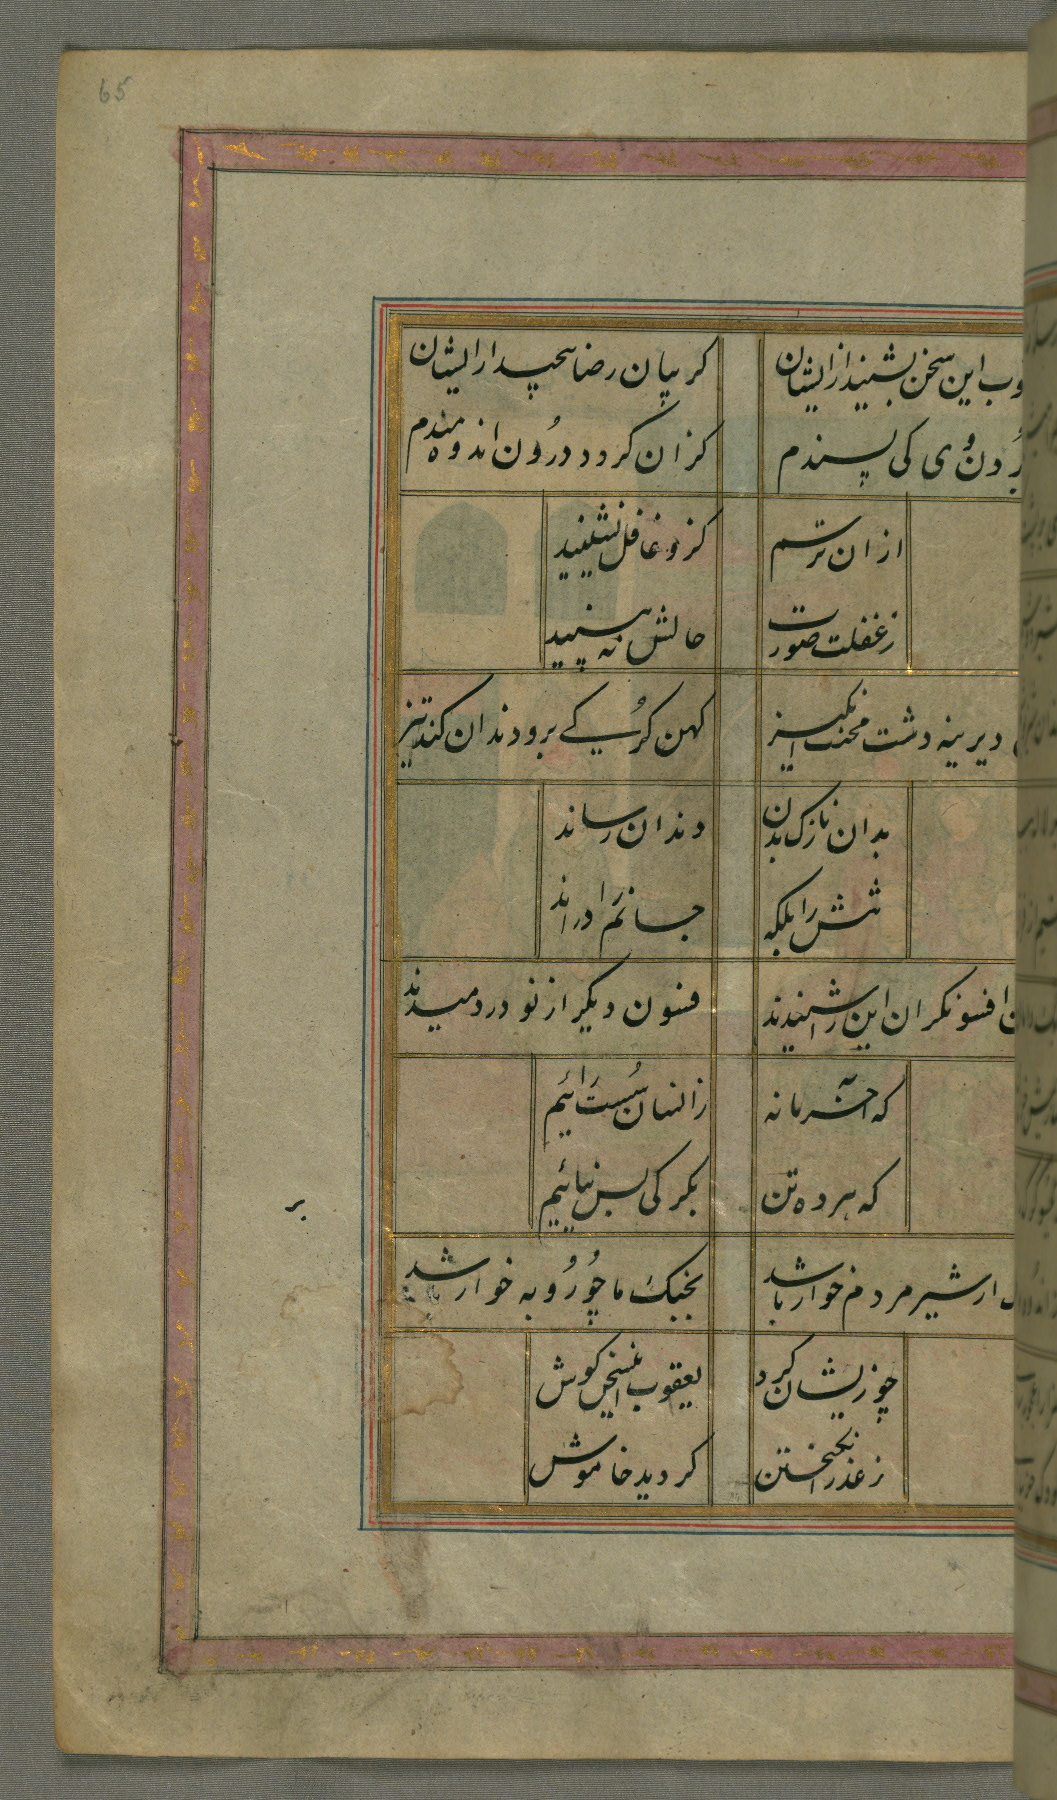 65
وب این سخن بشنید از ایشان
کریبان رضا پیچید از ایشان
بردن وی کی پسندم
کزان کردد درون اندوه مندم
از ان ترسم
کزو غافل نشینید
زغفلت صورت
حالش نه بینید
دیرینه دشت محنت انکیز
کهن کرکی برو دندان کند تیز
بدان نازک بدن
دندان رساند
تنش را بلکه
جانم را دراند
افسونکران این را شنیدند
فسون دیکر از نو در دمیدند
که آخر ما نه
زانسان سست رائیم
که هر ده تن
بکرکی بس نیائیم
ار شیر مردم خوار باشد
بجنک ما چو روبه خوار باشد
چو زیشان کرد
یعقوب این سخن کوش
زعذر انکیختن
کردید خاموش
بر